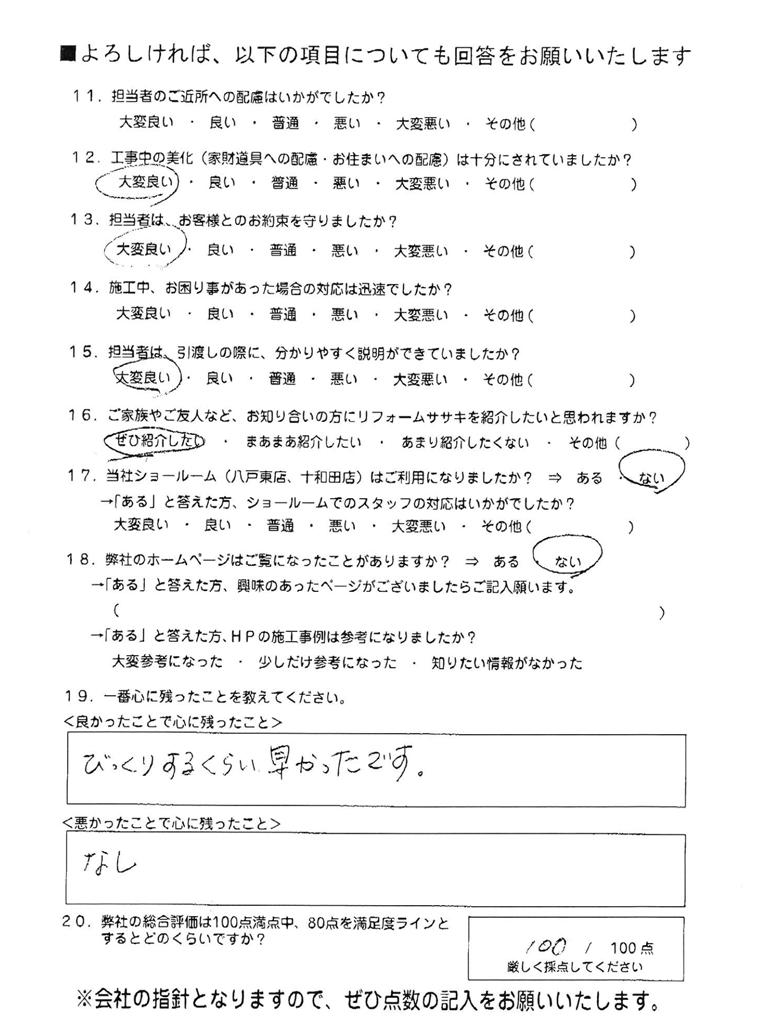 ■よろしければ、以下の項目についても回答をお願いいたします
11．担当者のご近所への配慮はいかがでしたか？
大変良い ・ 良い ・ 普通 ・ 悪い ・ 大変悪い ・ その他（　　　　　　　）
12．工事中の美化（家財道具への配慮・お住まいへの配慮）は十分にされていましたか？
大変良い ・ 良い ・ 普通 ・ 悪い ・ 大変悪い ・ その他（　　　　　　　）
13．担当者は、お客様とのお約束を守りましたか？
大変良い ・ 良い ・ 普通 ・ 悪い ・ 大変悪い ・ その他（　　　　　　　）
14．施工中、お困り事があった場合の対応は迅速でしたか？
大変良い ・ 良い ・ 普通 ・ 悪い ・ 大変悪い ・ その他（　　　　　　　）
15．担当者は、引渡しの際に、分かりやすく説明ができていましたか？
大変良い ・ 良い ・ 普通 ・ 悪い ・ 大変悪い ・ その他（　　　　　　　）
16．ご家族やご友人など、お知り合いの方にリフォームササキを紹介したいと思われますか？
ぜひ紹介したい ・ まあまあ紹介したい ・ あまり紹介したくない ・ その他（　　　　）
17．当社ショールーム（八戸東店、十和田店）はご利用になりましたか？ ⇒ ある ・ ない
→「ある」と答えた方、ショールームでのスタッフの対応はいかがでしたか？
大変良い ・ 良い ・ 普通 ・ 悪い ・ 大変悪い ・ その他（　　　　　　　）
18．弊社のホームページはご覧になったことがありますか？ ⇒ ある ない
→「ある」と答えた方、興味のあったページがございましたらご記入願います。
（　　　　　　　　　　　　　　　　　　　　　　　　　　　　　　）
→「ある」と答えた方、ＨＰの施工事例は参考になりましたか？
大変参考になった ・ 少しだけ参考になった ・ 知りたい情報がなかった
19．一番心に残ったことを教えてください。
＜良かったことで心に残ったこと＞
びっくりするくらい早かったです。
＜悪かったことで心に残ったこと＞
なし
20．弊社の総合評価は100点満点中、80点を満足度ラインと
するとどのくらいですか？
100 / 100点
厳しく採点してください
※会社の指針となりますので、ぜひ点数の記入をお願いいたします。